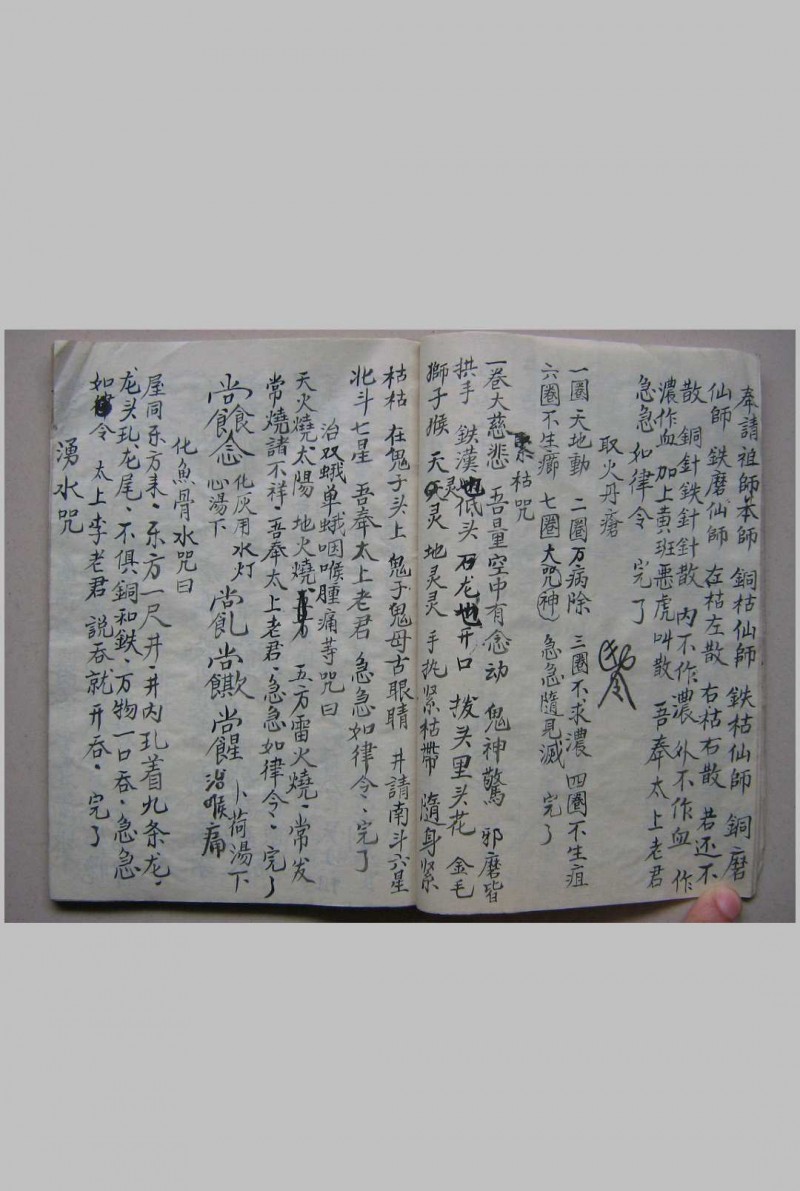 奉請祖師本師 銅枯仙師 鉄枯仙師 銅磨
仙師 鉄磨仙師 左枯左散 右枯右散 若还不
散 銅針鉄針針散 内不作濃 外不作血 作
濃作血 加上黄班恶虎叫散 吾奉太上老君
急急如律令 完了
取火丹瘡
一圈天地動 二圈万病除 三圈不求濃 四圈不生疽
六圈不生癤 七圈大咒神 急急隨見滅 完了
枯咒
一巻大慈悲 吾量空中有念动 鬼神驚 邪磨皆
拱手 鉄漢也低头 石龙也开口 拔头里头花 金毛
獅子猴 天灵灵 地灵灵 手执紧枯帶 隨身紧
枯枯 在鬼子头上 鬼子鬼母古眼睛 井請南斗六星
北斗七星 吾奉太上老君 急急如律令、完了
治双蛾单蛾咽喉腫痛等咒曰
天火燒太陽 地火燒方 五方雷火燒、常发
常燒諸不祥、吾奉太上老君、急急如律令、完了
化灰用水灯
心湯下
卜荷湯下
治喉痛
化魚骨水咒曰
屋同东方来、东方一尺井、井内孔着九条龙、
龙头孔龙尾、不俱銅和鉄、万物一口吞、急急
如令 太上李老君 説吞就开吞、完了
湧水咒